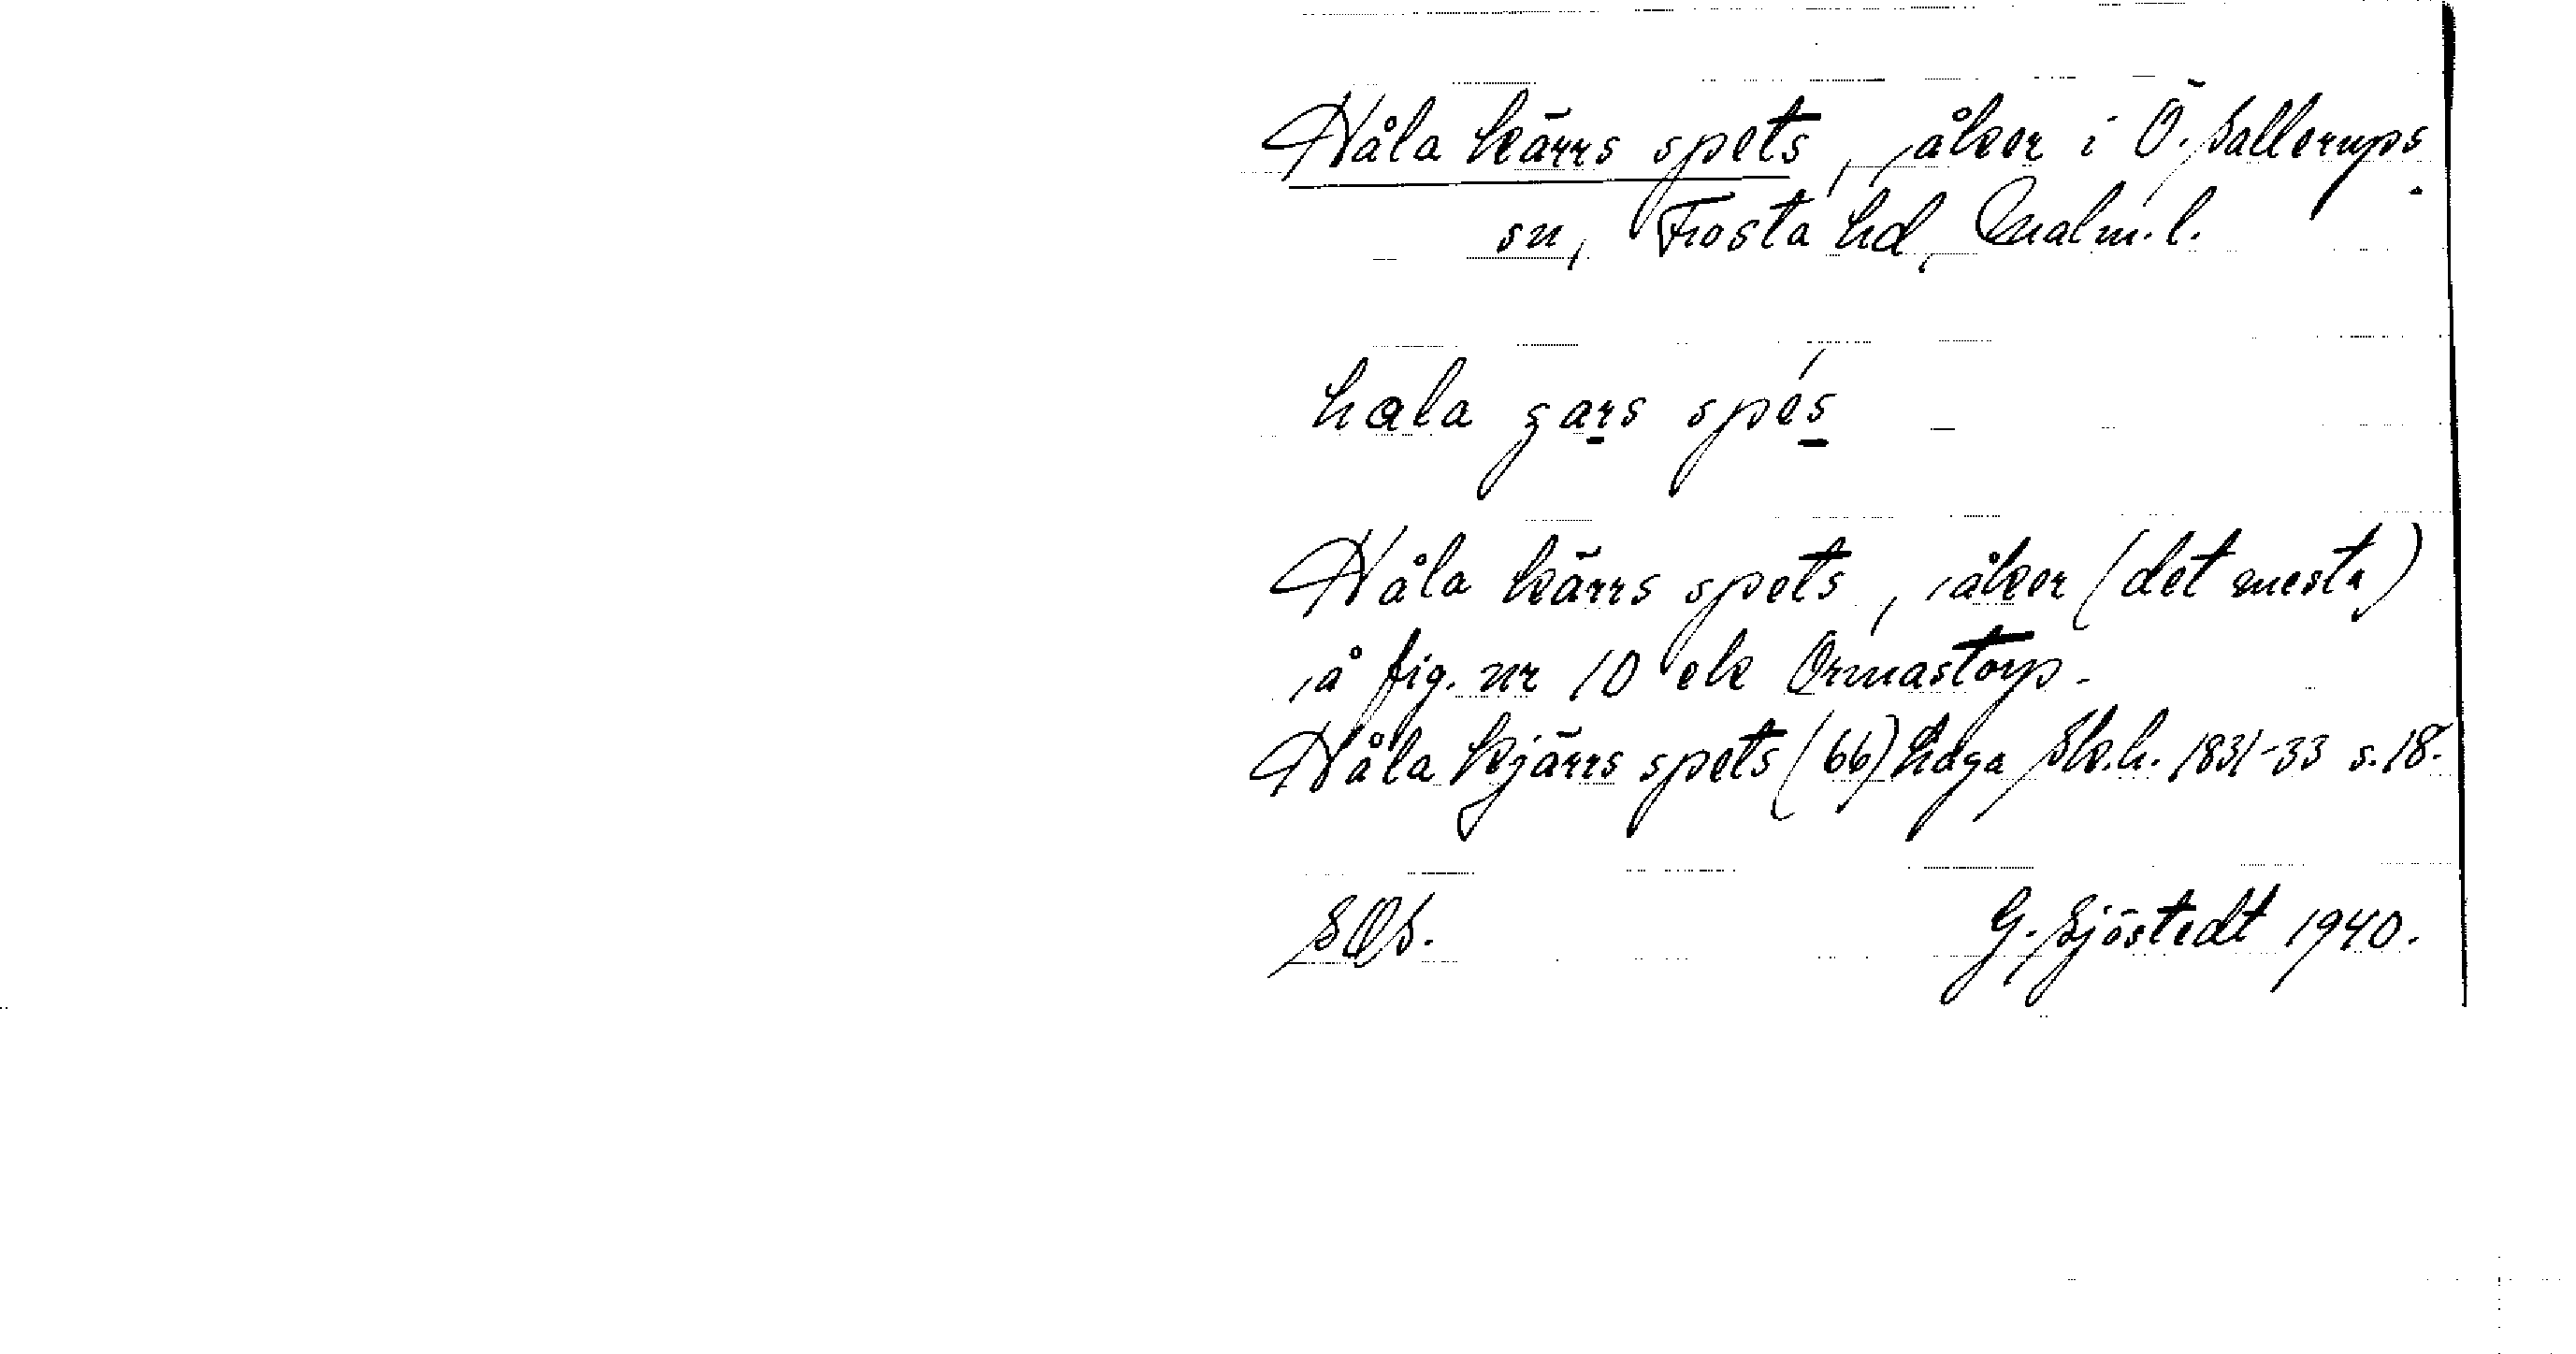 Håla kärrs spets, åker i Ö. Sallerups
sn, Frosta hd, Malm. l.
hala gars spés
Håla kärrs spets, åker (det mesta)
å fig. nr 10 ek Ormastorp.
Håla kjärrs spets (66) haga Sk.h. 1831-33 s. 18.
SOS. G. Sjöstedt 1940.